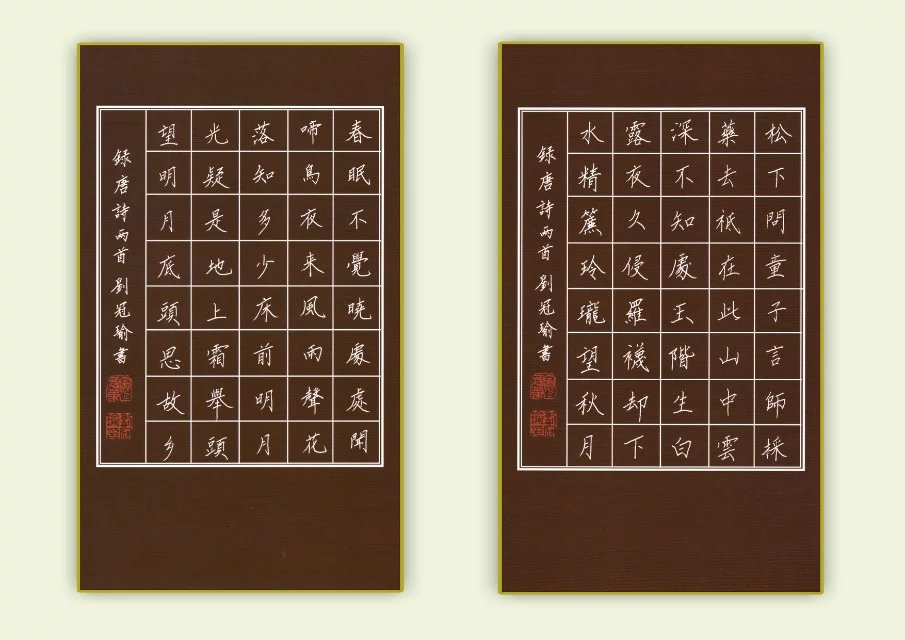 春眠不覺曉處處聞
啼鳥夜来風雨聲花
落知多少床前明月
光疑是地上霜舉頭
望明月底頭思故乡
録唐詩兩首 劉冠瑜書
松下問童子言師採
藥去祇在此山中雲
深不知處玉階生白
露夜久侵羅襪却下
水精簾玲瓏望秋月
録唐詩兩首 劉冠瑜書